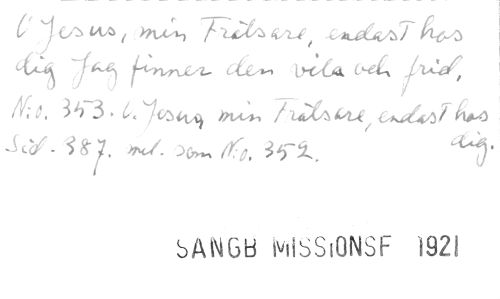 O Jesus, min Frälsare, endast hos
dig Jag finner den vila och frid.
N:o. 353. O. Jesus, min Frälsare, endast hos
dig.
Sid. 387. mel. som N:o. 352.
SANGB MISSIONSF 1921